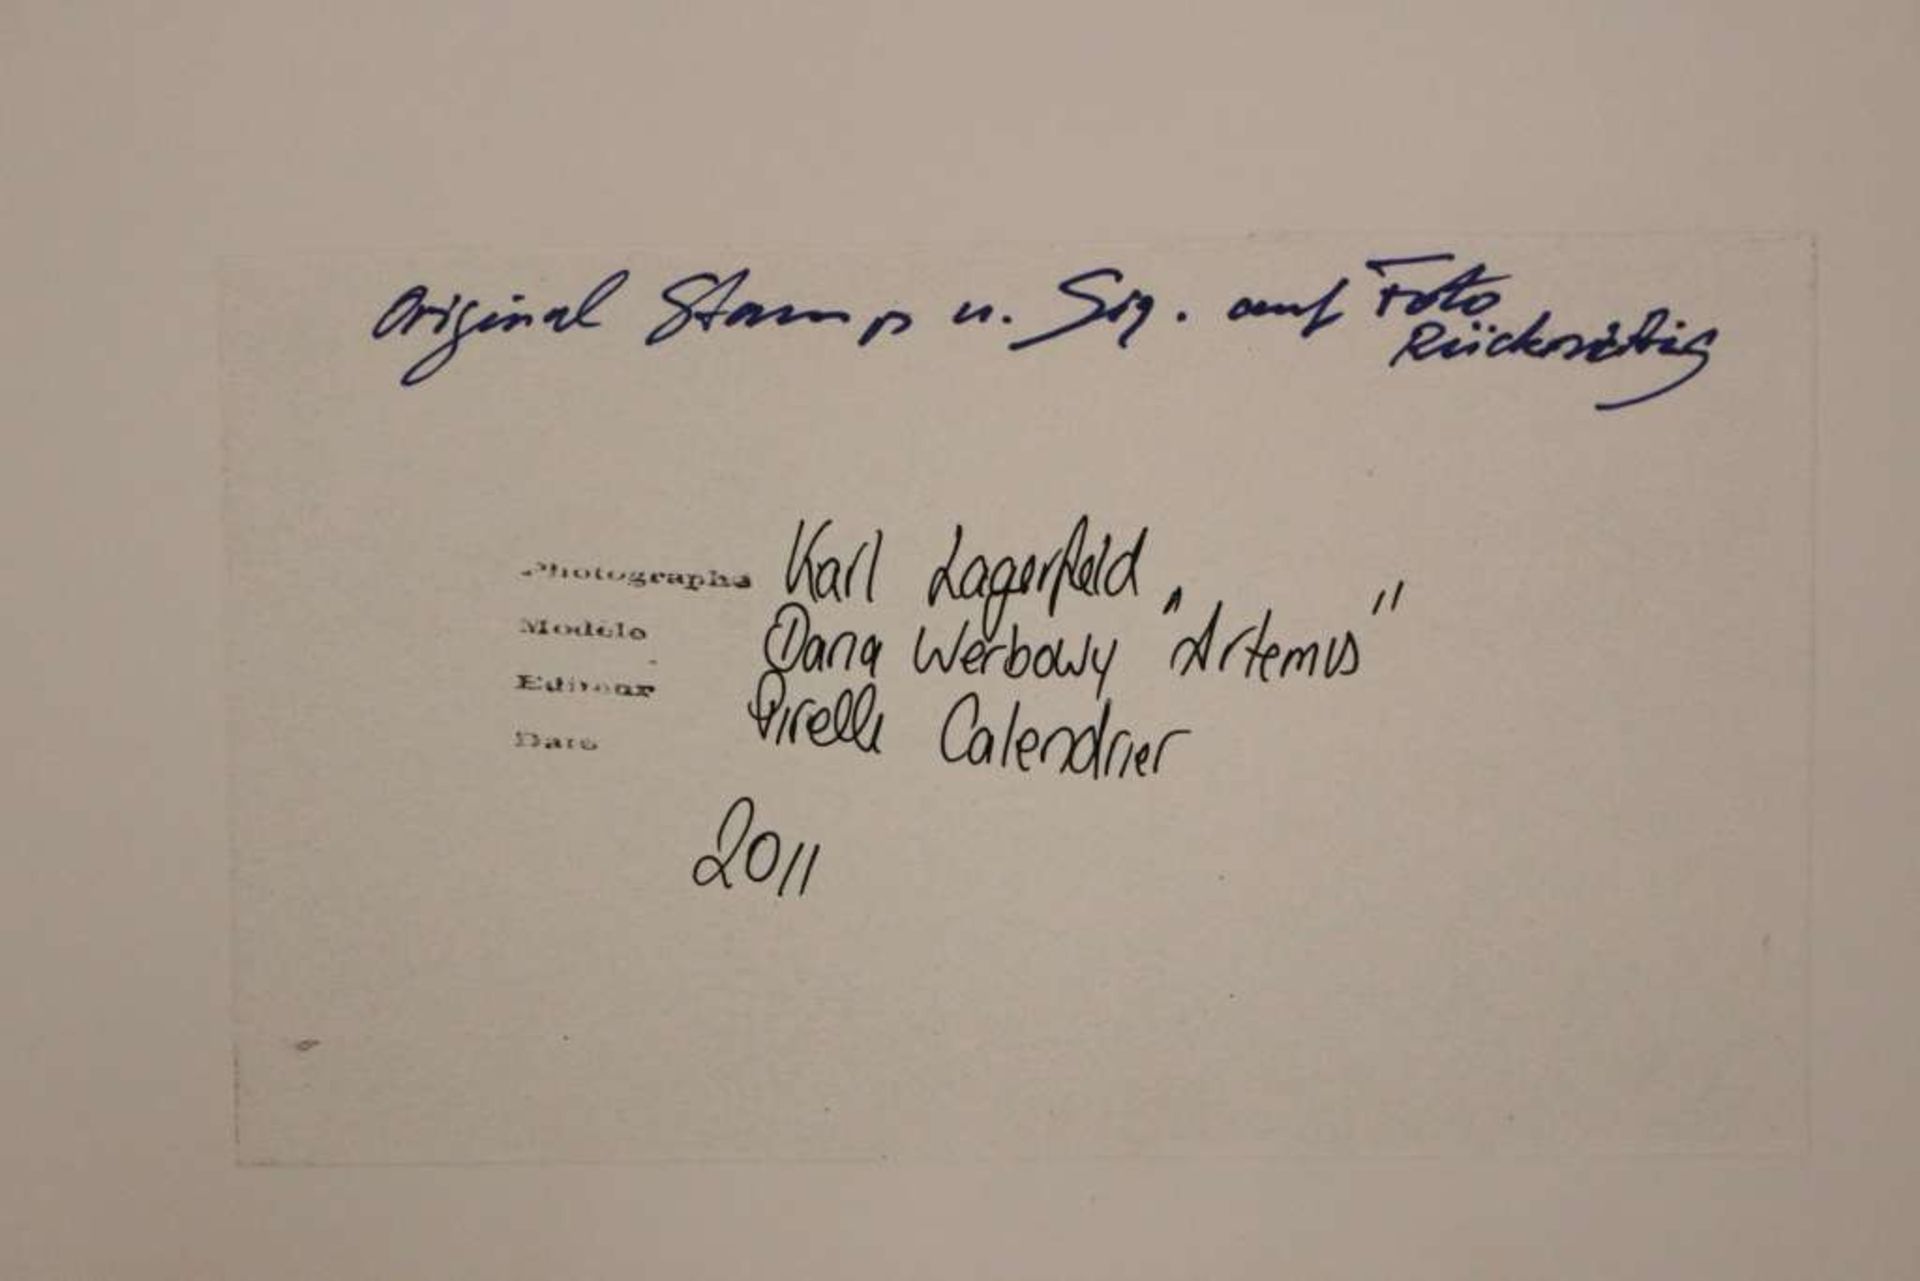 Original Stamp u. Sig. auf Foto
Rückseitig
Photographe Karl Lagerfeld
Modèle Dana Werbowy "Artemis"
Editeur Pirelli Calendrier
Date
2011